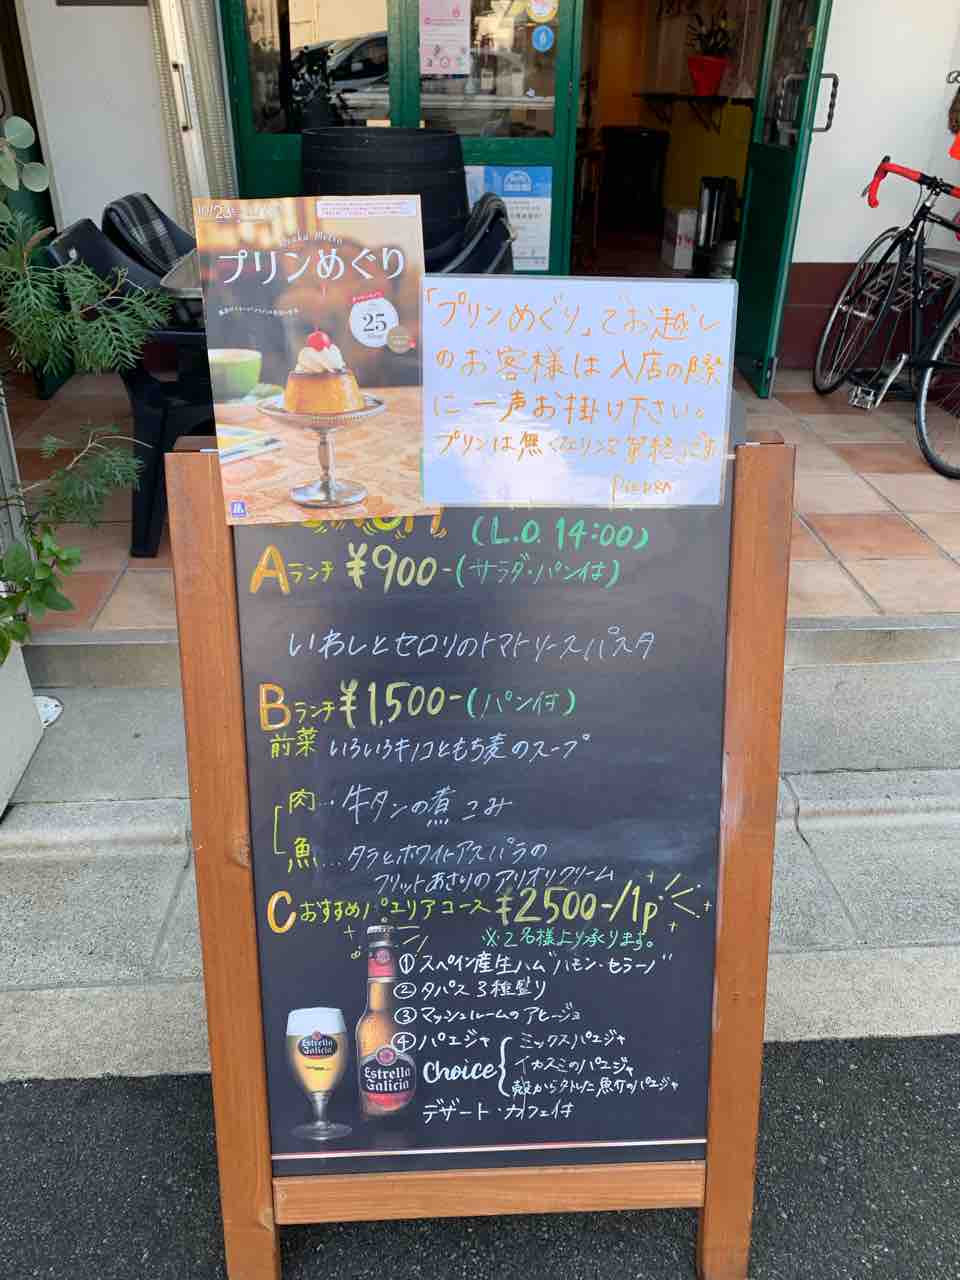 Osaka Metro
プリンめぐり
25
「プリンめぐり」でお越し
のお客様は入店の際
に一声お掛け下さい。
プリンは無くなりしだい終了です
(L.O. 14:00)
Aランチ ¥900-(サラダ・パン付)
いわしとセロリのトマトソースパスタ
Bランチ ¥1,500-(パン付)
前菜 いろいろキノコともち麦のスープ
肉…牛タンの煮こみ
魚…タラとホワイトアスパラの
フリットあさりのアリオリクリーム
Cおすすめパエリアコース ¥2500-/1p
※2名様より承ります。
①スペイン産生ハム"ハモン・セラーノ"
②タパス3種盛り
③マッシュルームのアヒージョ
④パエジャ ミックスパエジャ
choice イカスミのパエジャ
殻からとった魚介のパエジャ
デザート・カフェ付
Estrella
Galicia
Estrella
Galicia